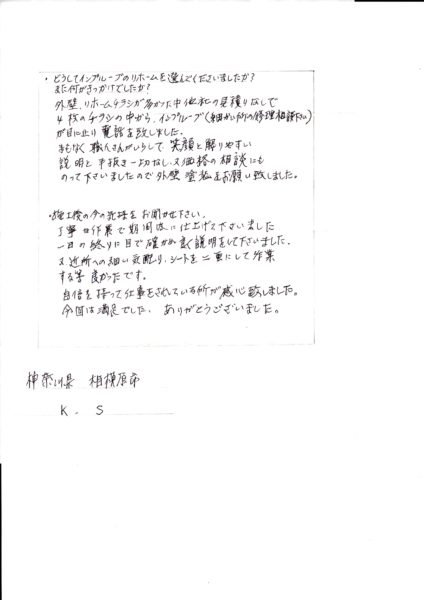 ・どうしてインプルーブのリホームを選んでくださいましたか?
また何がきっかけでしたか?
外壁、リホームチラシが多かった中他社の見積りなしで
4枚のチラシの中から、インプルーブ(細かい所の修理相談下さい)
が目に止り電話を致しました。
まもなく職人さんがいらして笑顔と解りやすい
説明と手抜き一切なし、又価格の相談にも
のって下さいましたので外壁塗装をお願い致しました。
・施工後の今の気持をお聞かせ下さい。
丁寧な作業で期間内に仕上げて下さいました
一日の終りに目で確かめ良く説明をして下さいました。
又近所への細い気配り、シートを二重にして作業
する等良かったです。
自信を持って仕事をされている所が感心致しました。
今回は満足でした、ありがとうございました。
神奈川県 相模原市
K.S